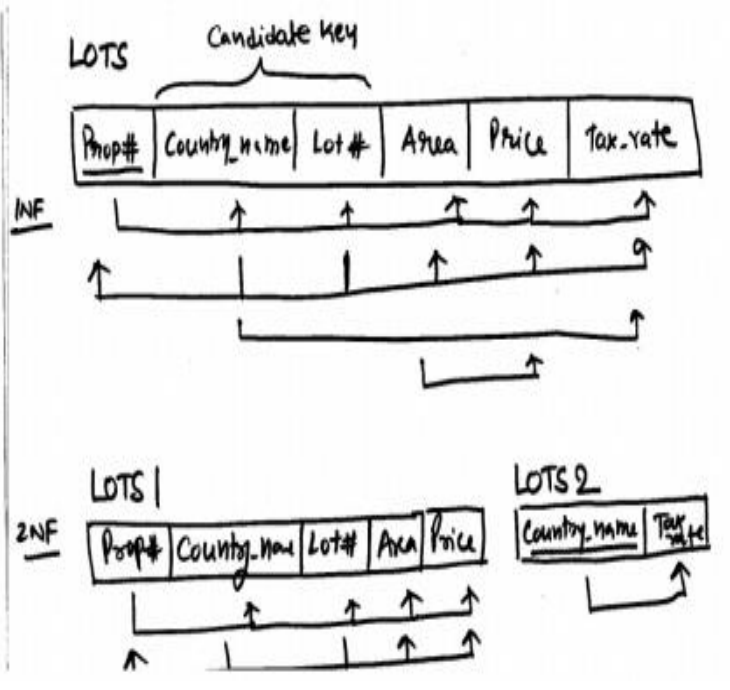 Candidate Key
LOTS
Prop# Country_name Lot# Area Price Tax_rate
1NF
LOTS 1
LOTS 2
2NF
Prop# Country_name Lot# Area Price
Country_name Tax rate